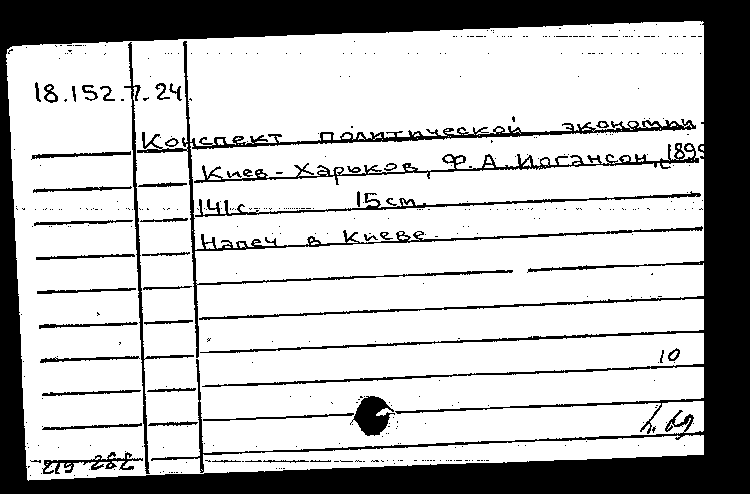 18.152.7.24
Конспект политической экономии
Киев-Харьков, Ф.А. Иогансон, 1899
141 с. 15 cm.
Напеч в Киеве
10